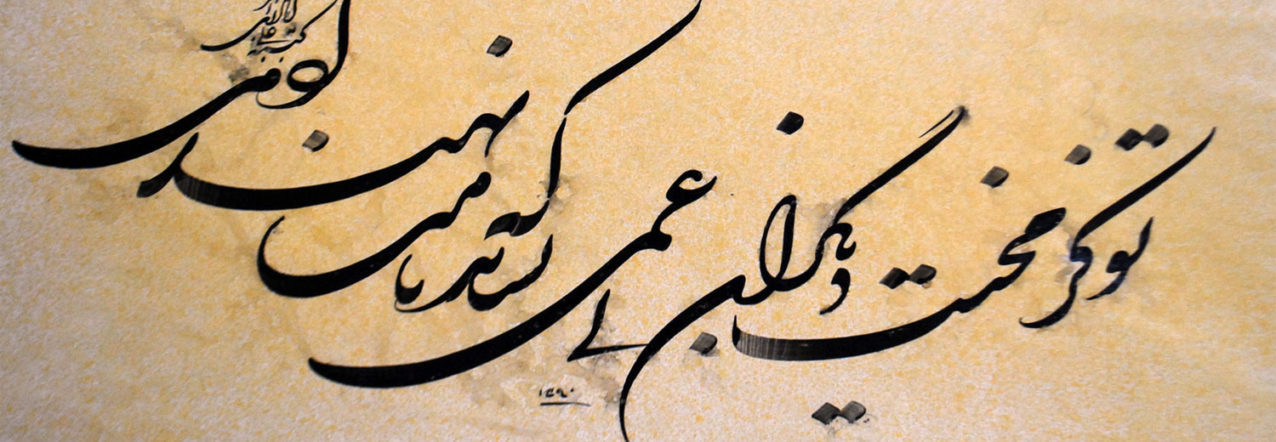 تو کز محنت دیگران بی غمی
نشاید که نامت نهند آدمی
۱۳۹۰